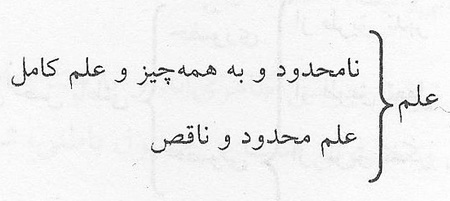 نامحدود و به همه‌چیز و علم کامل
علم
علم محدود و ناقص